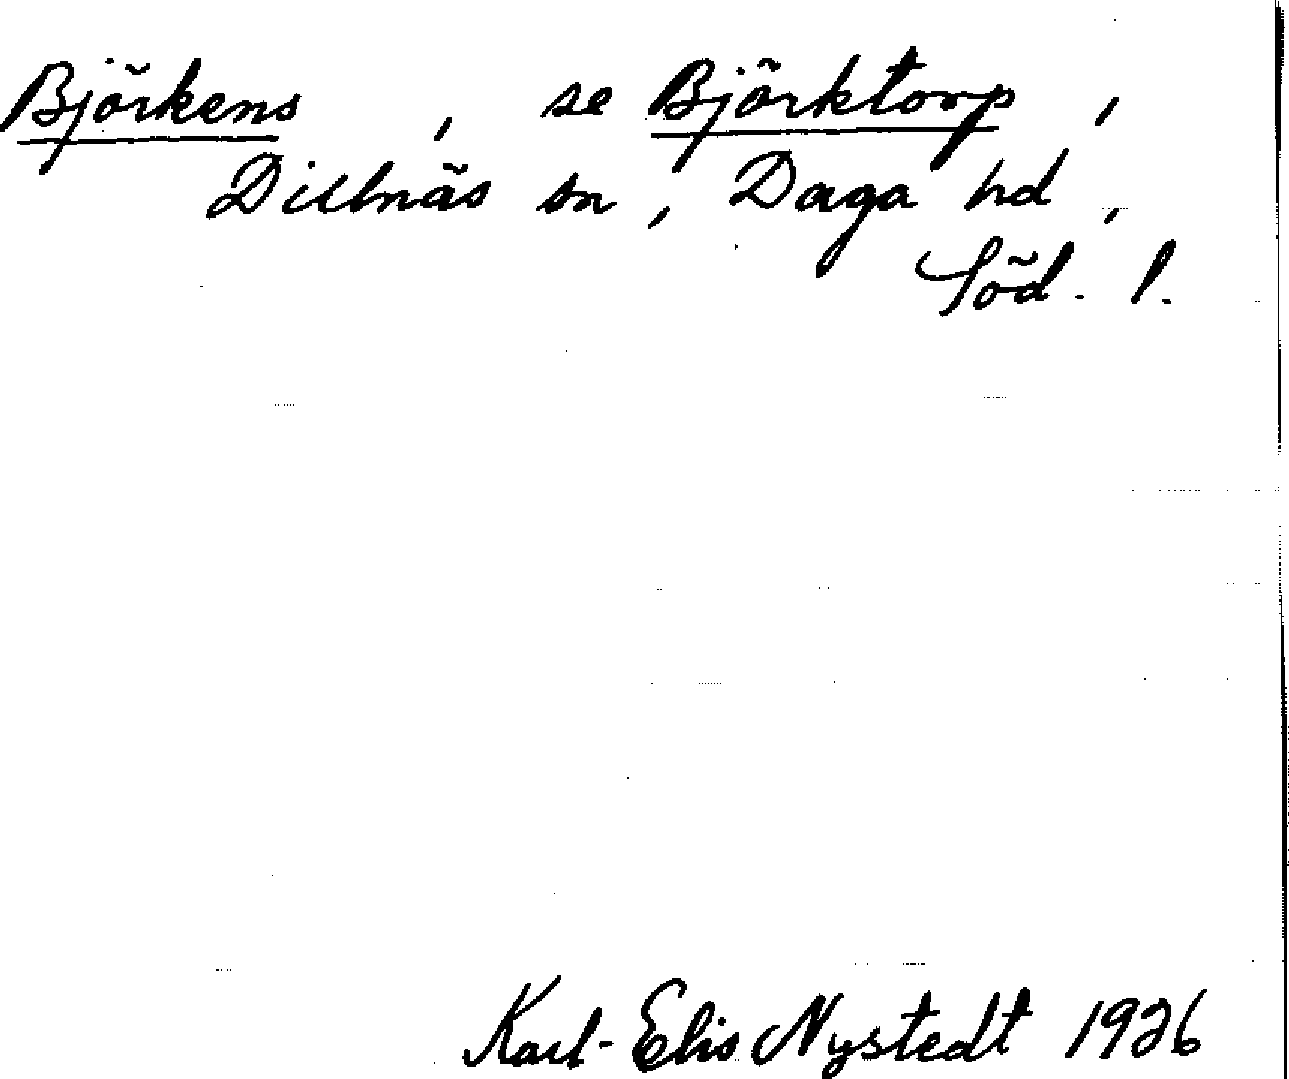 Björkens, se Björktorp,
Dillnäs sn, Daga hd,
Söd. l.
Karl-Elis Nystedt 1926